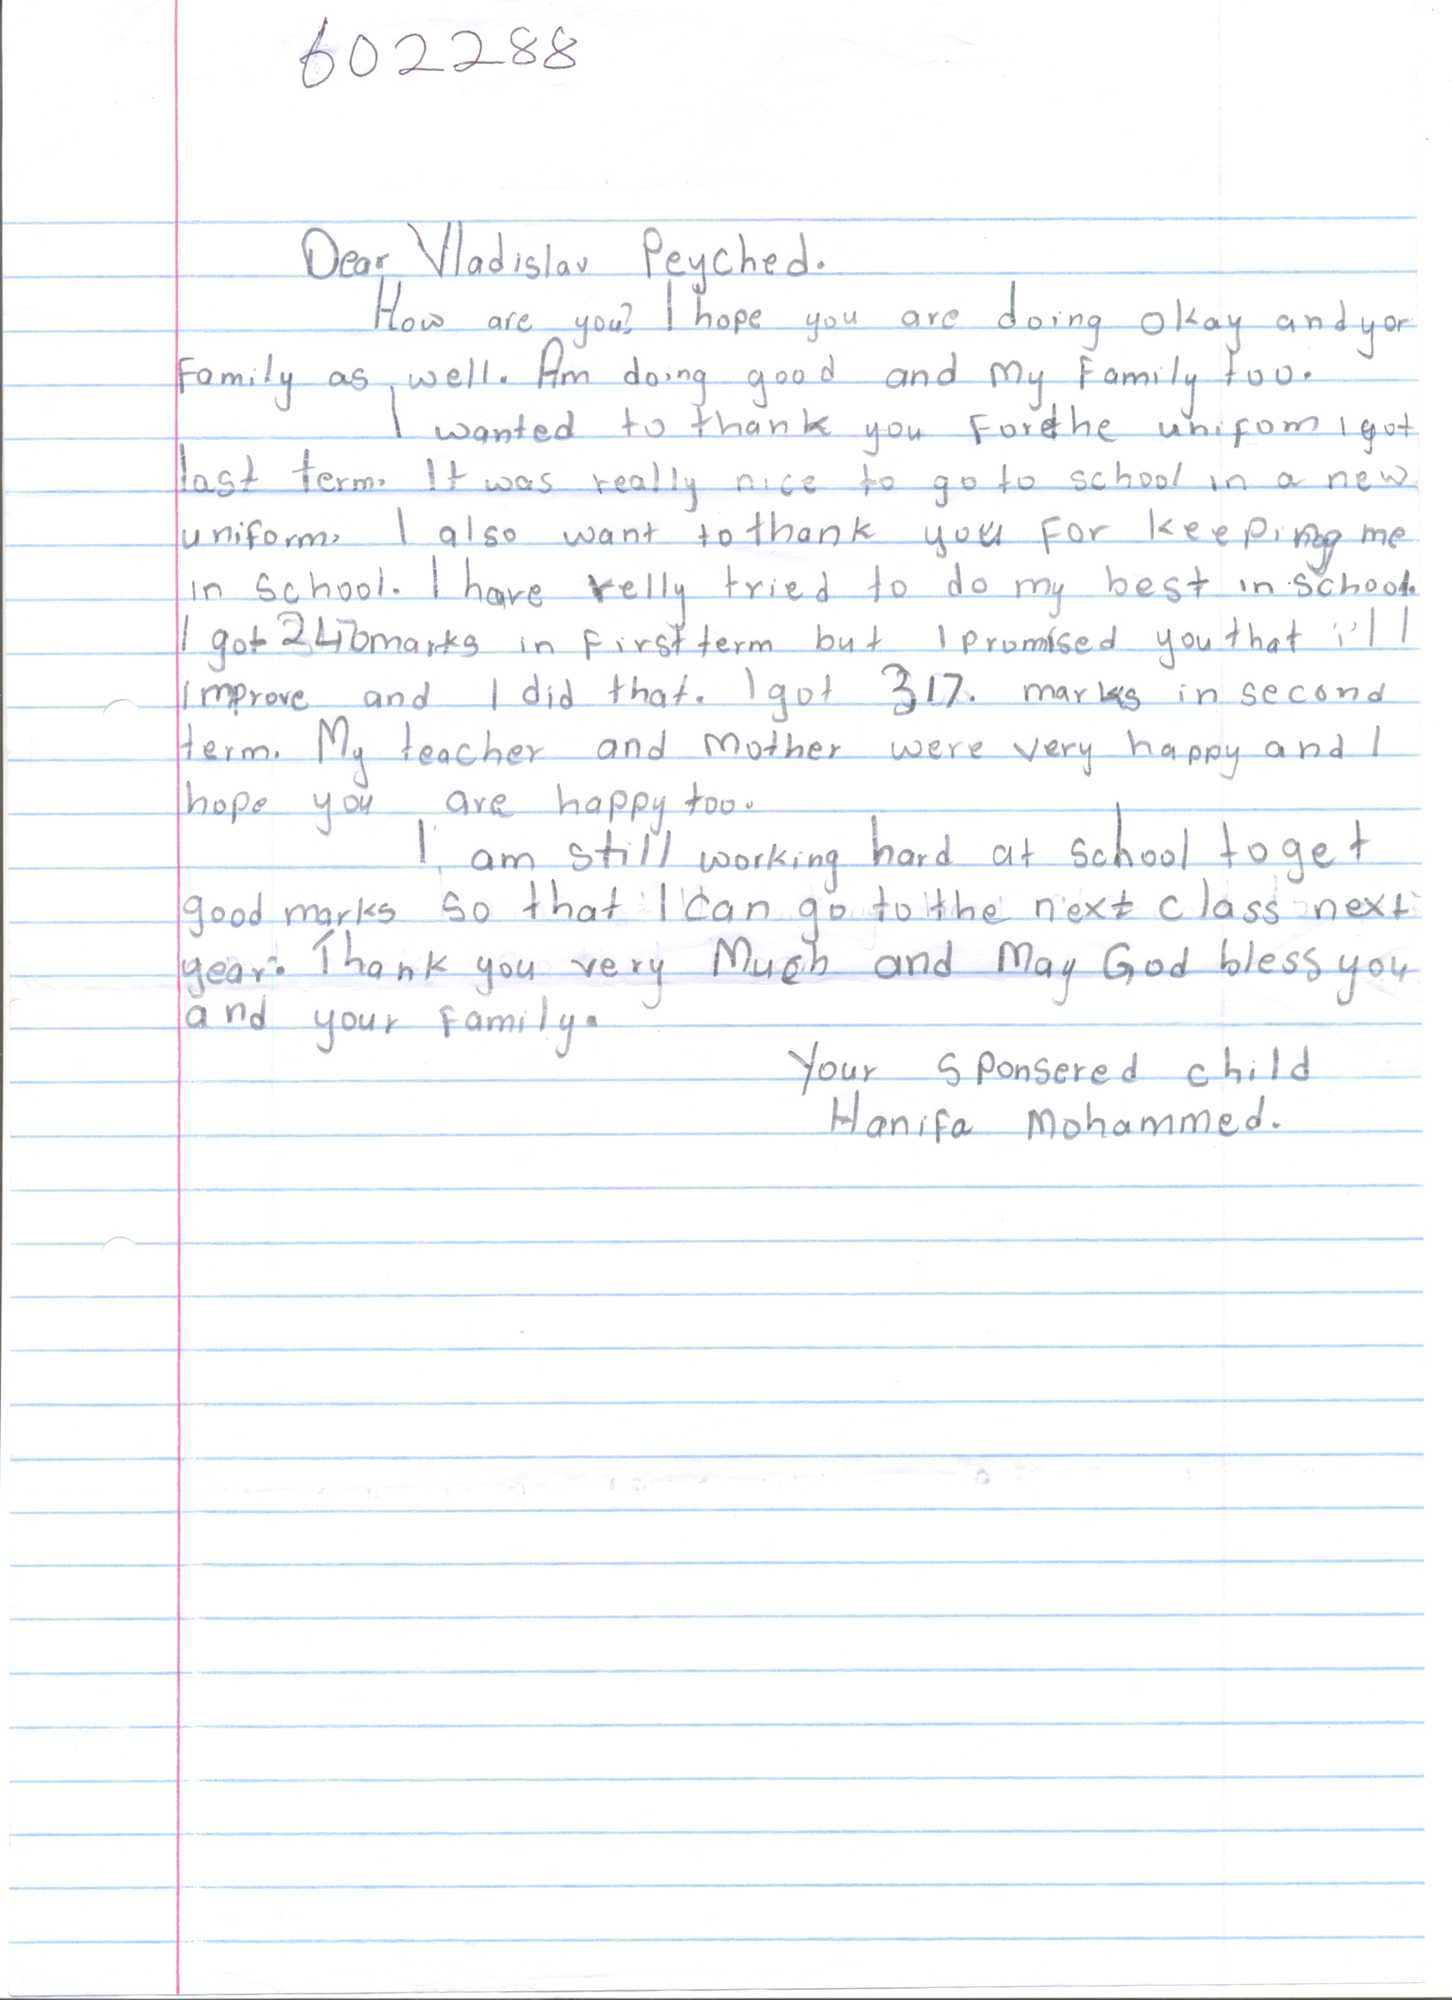 602288
Dear Vladislav Peyched.
How are you? I hope you are doing okay and yor
family as well. Am doing good and my family too.
I wanted to thank you for the unifom I got
last term. It was really nice to go to school in a new
uniform. I also want to thank you for keeping me
in school. I have relly tried to do my best in school.
I got marks in first term but I promised you that i'll
improve and I did that. I got 317. marks in second
term. My teacher and mother were very happy and I
hope you are happy too.
I am still working hard at school to get
good marks so that I can go to the next class next
year. Thank you very Much and may God bless you
and your family.
Your sponsered child
Hanifa Mohammed.